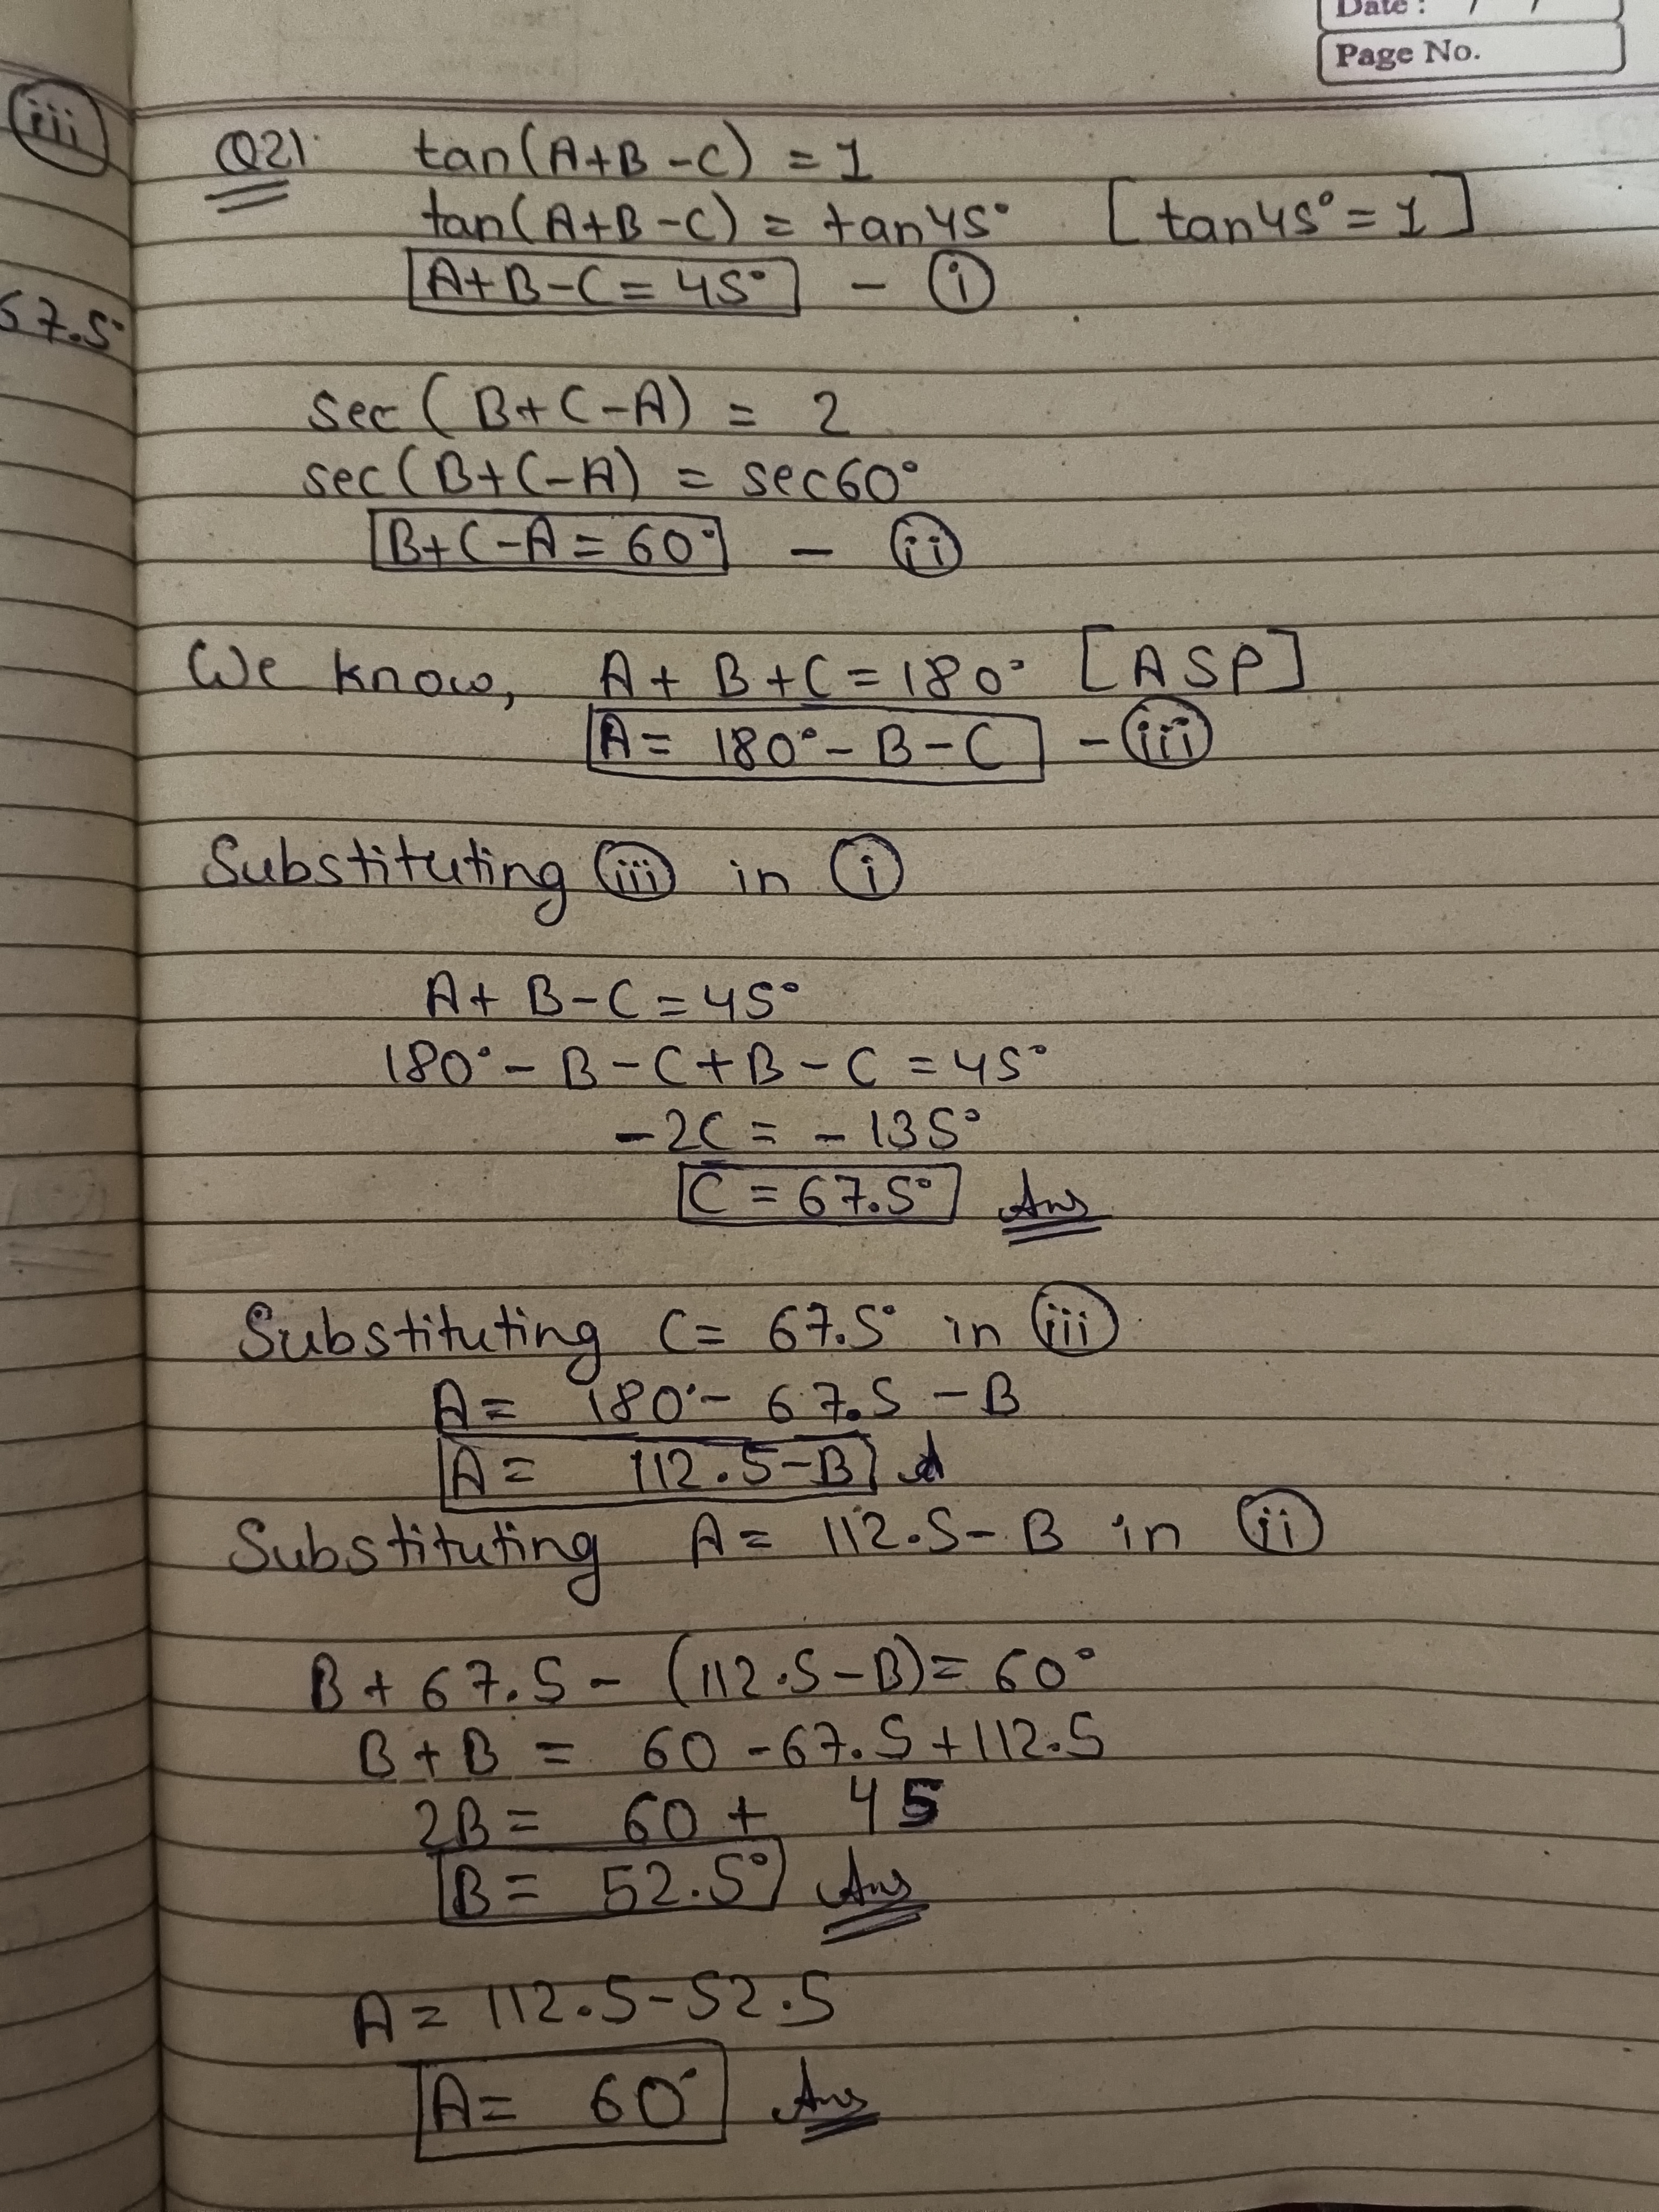 Date : / /
Page No.
iii
67.5°
Q21. tan(A+B-C) = 1
tan(A+B-C) = tan45° [tan45° = 1]
A+B-C = 45° - i
sec(B+C-A) = 2
sec(B+C-A) = sec60°
B+C-A = 60° - ii
We know, A+B+C = 180° [ASP]
A = 180° - B - C - iii
Substituting iii in i
A+B-C = 45°
180° - B - C + B - C = 45°
-2C = -135°
C = 67.5° Ans
Substituting C = 67.5° in iii
A = 180° - 67.5 - B
A = 112.5 - B
Substituting A = 112.5 - B in ii
B + 67.5 - (112.5 - B) = 60°
B + B = 60 - 67.5 + 112.5
2B = 60 + 45
B = 52.5° Ans
A = 112.5 - 52.5
A = 60° Ans